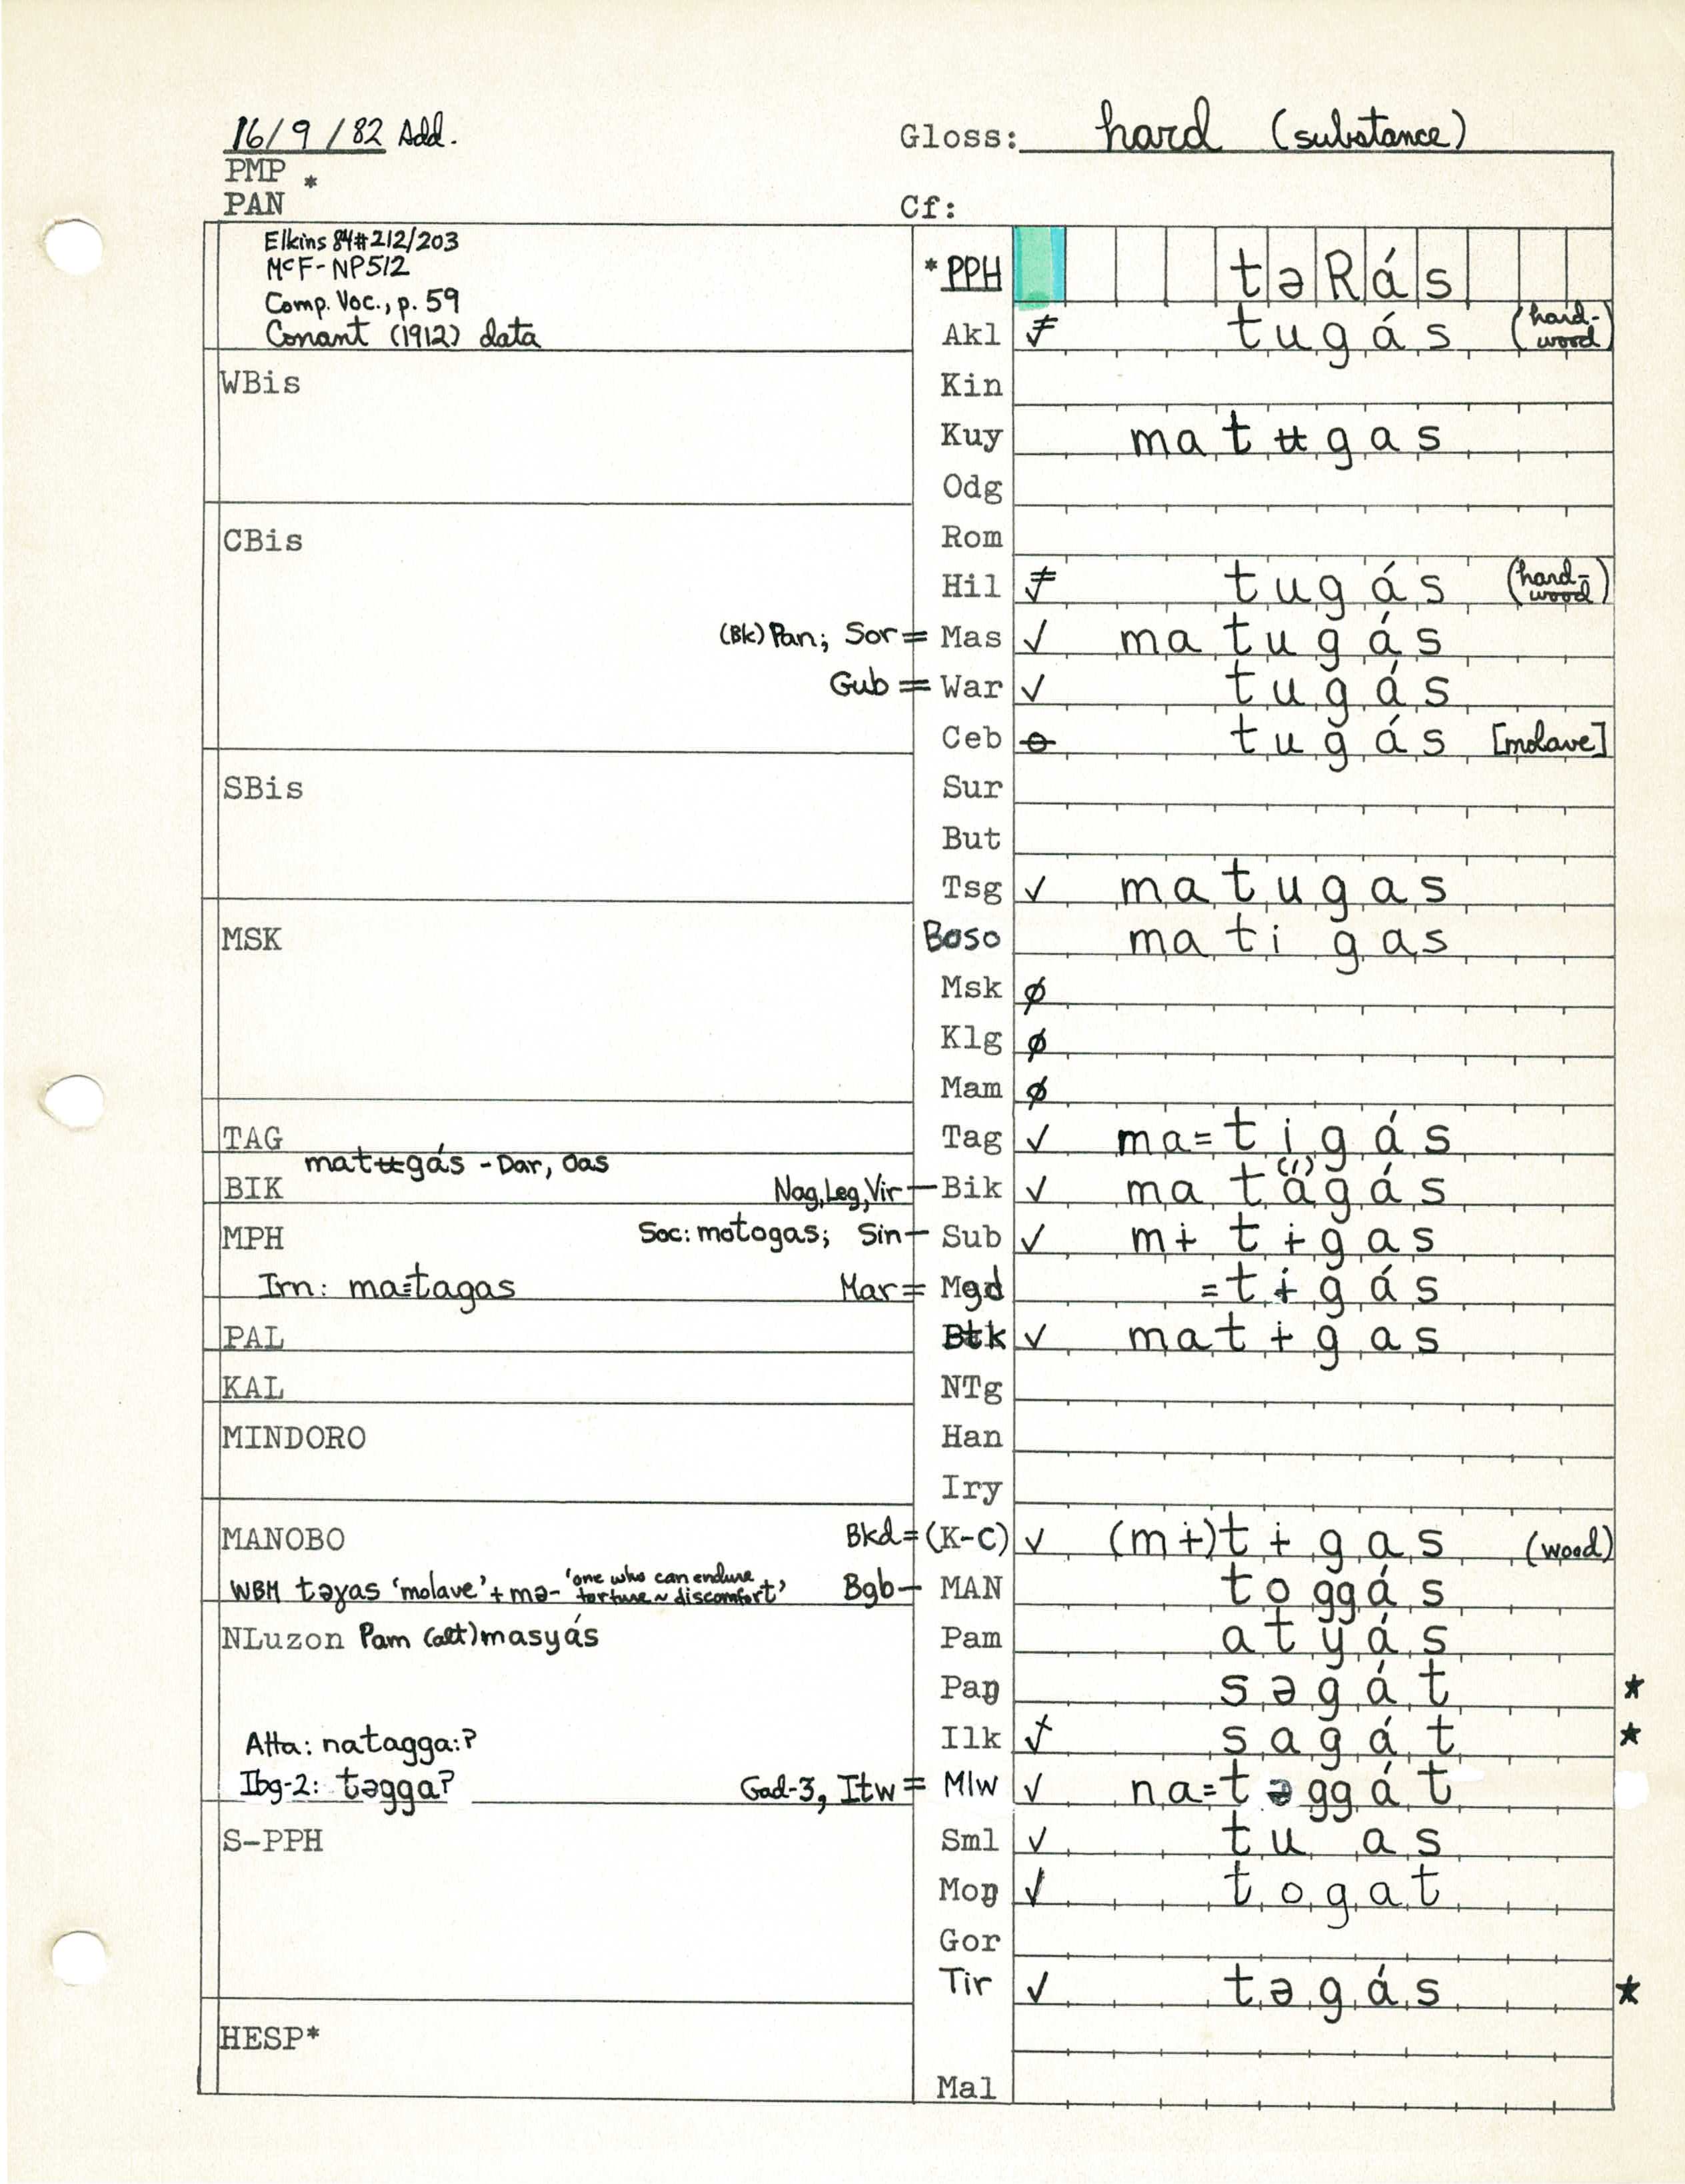 16/9/82 Add.
Gloss: hard (substance)
PMP *
PAN
Cf:
Elkins 84#212/203
McF-NP512
Comp. Voc., p. 59
Conant (1912) data
*PPH təRás
Akl tugás (hard-wood)
WBis
Kin
Kuy matʉgas
Odg
CBis
Rom
Hil tugás (hard-wood)
(Bk) Pan; Sor = Mas ✓ matugás
Gub = War ✓ tugás
Ceb ɵ tugás [molave]
SBis
Sur
But
Tsg ✓ matugas
MSK
Boso matigas
Msk ø
Klg ø
Mam ø
TAG
Tag ✓ ma=tigás
matʉgás - Dar, Oas
BIK
Nag, Leg, Vir - Bik ✓ matá(í)gás
MPH
Soc: motogas; Sin - Sub ✓ mɨtɨgas
Irn: ma=tagas
Mar = Mgd =tɨgás
PAL
Btk ✓ matɨgas
KAL
NTg
MINDORO
Han
Iry
MANOBO
Bkd = (K-C) ✓ (mɨ)tɨgas (wood)
WBM təɣas 'molave' + mə- 'one who can endure torture ~ discomfort'
Bgb - MAN toggás
NLuzon Pam (alt) masyás
Pam atyás
Paŋ səgát *
Atta: natagga:ʔ
Ilk sagát *
Ibg-2: təggaʔ
Gad-3, Itw = Mlw ✓ na=təggát
S-PPH
Sml ✓ tu as
Moŋ ✓ togat
Gor
Tir ✓ təgás *
HESP*
Mal